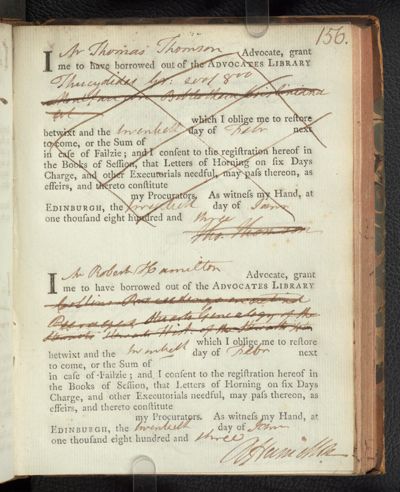 156.
I Mr Thomas Thomson Advocate, grant
me to have borrowed out of the ADVOCATES LIBRARY
Thucydides Gr:
which I oblige me to reſtore
betwixt and the twentieth day of Febr next
to come, or the Sum of
in caſe of Failzie; and I conſent to the regiſtration hereof in
the Books of Seſſion, that Letters of Horning on ſix Days
Charge, and other Executorials needful, may paſs thereon, as
effeirs, and thereto conſtitute
my Procurators. As witneſs my Hand, at
EDINBURGH, the twentieth day of Janr
one thouſand eight hundred and three
Tho. Thomson
I Mr Robert Hamilton Advocate, grant
me to have borrowed out of the ADVOCATES LIBRARY
Collins
Peerages Genealogy of the
Stewarts Hist. of the
which I oblige me to reſtore
betwixt and the twentieth day of Febr next
to come, or the Sum of
in caſe of Failzie; and I conſent to the regiſtration hereof in
the Books of Seſſion, that Letters of Horning on ſix Days
Charge, and other Executorials needful, may paſs thereon, as
effeirs, and thereto conſtitute
my Procurators. As witneſs my Hand, at
EDINBURGH, the twentieth day of Janr
one thouſand eight hundred and three
R Hamilton